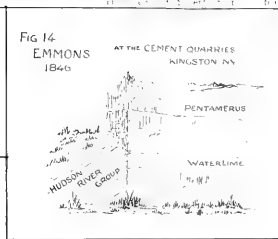 FIG 14
EMMONS
1846
AT THE CEMENT QUARRIES
KINGSTON NY
PENTAMERUS
WATERLIME
HUDSON RIVER
GROUP